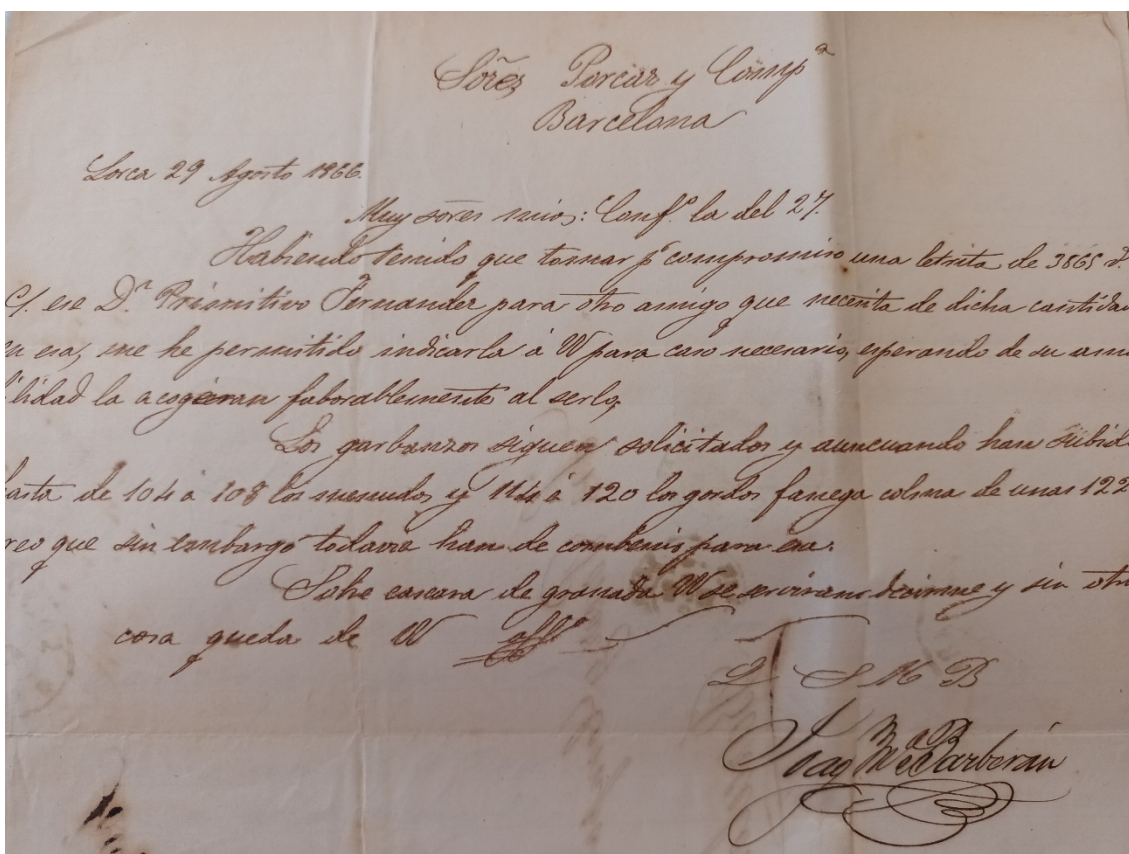 Sores Porcar y Compª
Barcelona
Lorca 29 Agosto 1866.
Muy sores mios: Conf.º la del 27.
Habiendo tenido que tomar pr compromiso una letrita de 3865 r.
C/. ese Dn. Primitivo Fernandez para otro amigo que necesita de dicha cantidad
en esa, me he permitido indicarla á VV para caso necesario, esperando de su ama
bilidad la acogieran faborablemente al serlo,
Los garbanzos siguen solicitados y auncuando han subido
hasta de 104 a 108 los menudos, y 114 á 120 los gordos fanega colma de unas 122
creo que sin embargo todavia han de combenir para esa.
Sobre cascara de granada VV se serviran decirme y sin otra
cosa queda de VV affº
Q S M B
Joaq Mª Barberán